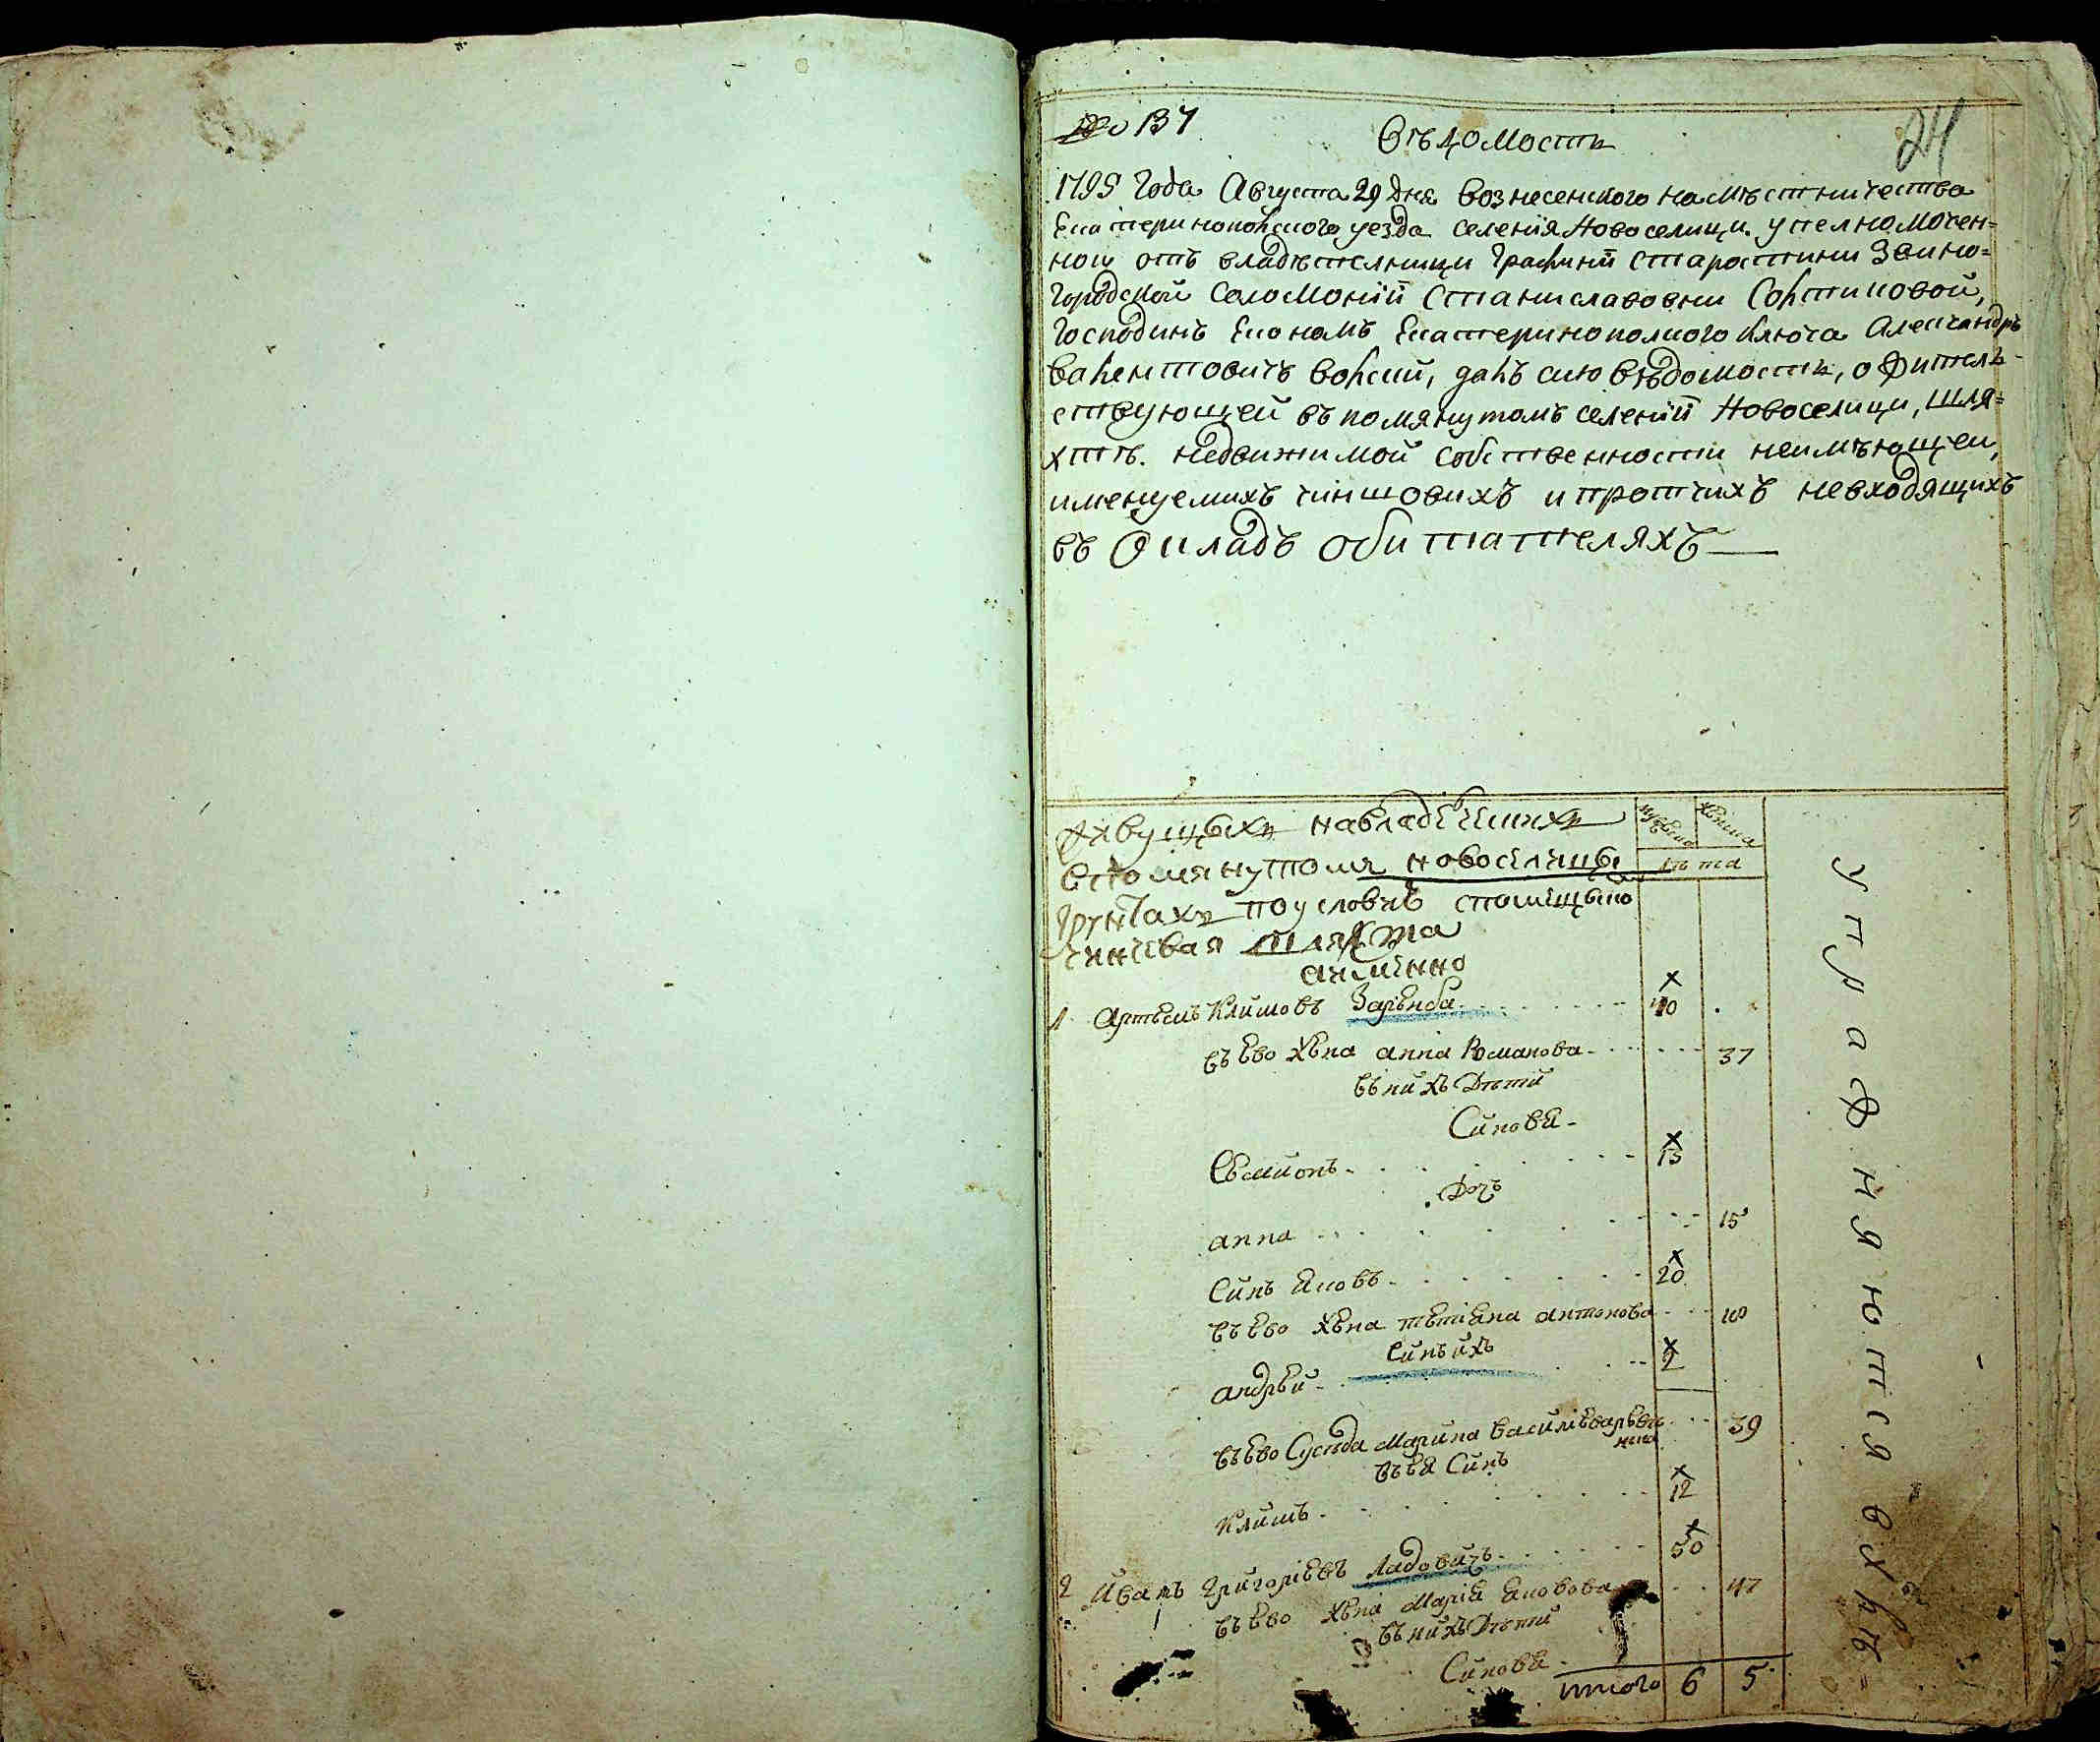 137
24
Вѣдомость
1795 Года Августа 29 Дня Вознесенского намѣстничества
Екатеринополского уезда селенія Новоселици. уполномочен=
ной отъ владѣтелници Графинѣ Старостини Звино=
городской Соломоніи Станиславовни
Господинъ Економъ Екатеринополного Ключа Александръ
далъ сию вѣдомость, о Жител-
ствующей въ помянутомъ селеніи Новоселици, шля=
хтѣ. недвижимой собственности неимѣющей,
именуемихъ чиншовихъ и протчихъ невходящихъ
въ Окладъ обитателяхъ
Живущыхъ на
въпомянутомъ новоселицы
грунтахъ по условѣ спомещыко
чиншевая шляхта
аименно
мужеска женска
лѣта
1 Артемъ Климовъ Заремба 40
въ Ево жена анна Романова 37
въ нихъ Дѣти
Синовя
Семионъ 13
Дочь
анна 15
Синъ Яковъ 20
въ Ево жена тетяна антонова 18
Синъ ихъ
андрей 2
въ Ево Сусѣда Марина 39
въ Ея Синъ
Климъ 12
2 Иванъ Григоріевъ Ладовичъ 50
въ Ево жена Марія Яковова 47
въ нихъ Дѣти
Синовя
итого 6 5
упражняются